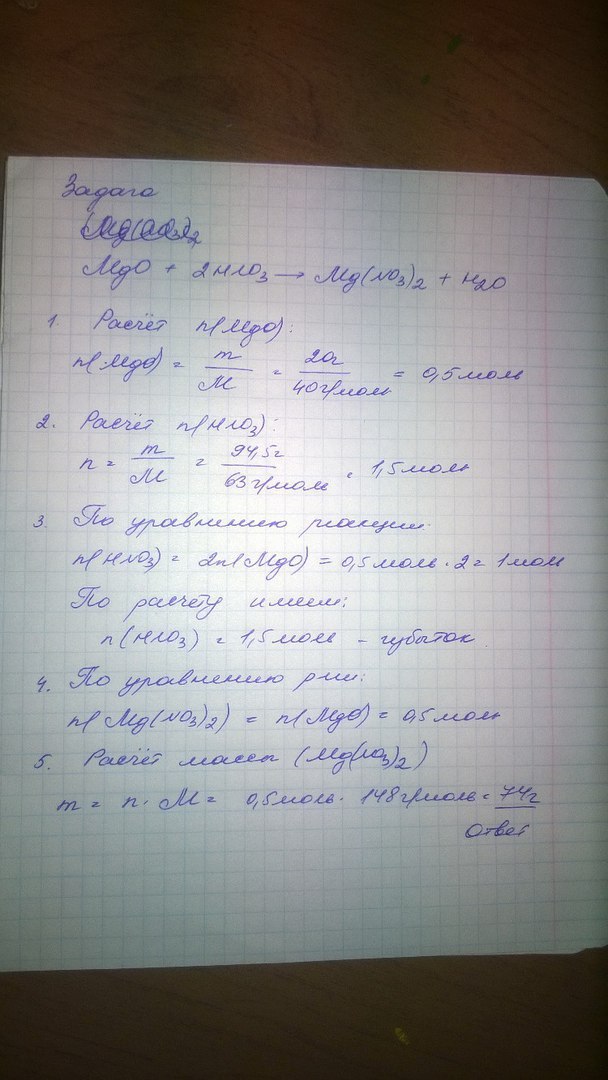 Задача
Mg(NO3)2
MgO + 2HNO3 → Mg(NO3)2 + H2O
1. Расчёт n(MgO):
n(MgO) = m/M = 20г/40г/моль = 0,5 моль
2. Расчёт n(HNO3):
n = m/M = 94,5г/63г/моль = 1,5 моль
3. По уравнению реакции
n(HNO3) = 2n(MgO) = 0,5 моль · 2 = 1 моль
По расчёту имеем:
n(HNO3) = 1,5 моль - избыток.
4. По уравнению р-ии:
n(Mg(NO3)2) = n(MgO) = 0,5 моль
5. Расчёт массы (Mg(NO3)2)
m = n · M = 0,5 моль · 148 г/моль = 74г
Ответ